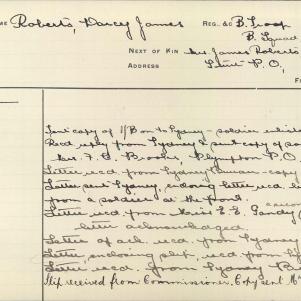 ME Roberts, Darcy James REG. &C B. Troop
B. Squad
NEXT OF KIN Mrs. James Roberts
ADDRESS P.O,
Sent copy of 1/B on to Sydney - soldier
Recd reply from Sydney & sent copy of
Mrs. F. G. Brooks, Plympton P.O
Letter recd. from Sydney - copy
Letter sent Sydney, enclosing letter recd.
from a soldier at the front.
Letter recd. from Miss E.E.
letter acknowledged.
Letter of ack. recd. from Sydney
Letter, enclosing slip, recd. from
Letter recd. from Sydney
Slip received from Commissioner. Copy sent